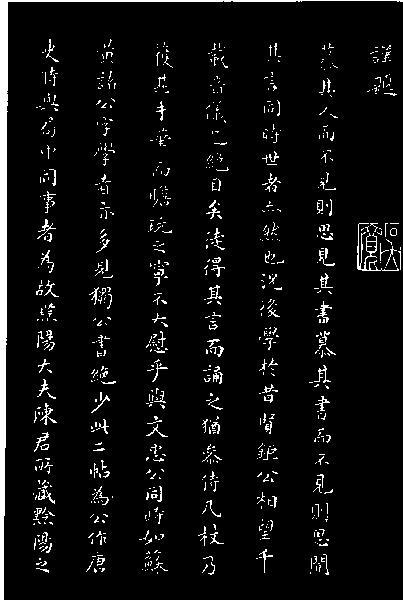 謹題
吳寬
慕其人而不見則思見其書慕其書而不見則思聞
其言同時世者亦然也況後學於昔賢鉅公相望千
載音儀已絕目矣徒得其言而誦之猶參侍几杖乃
獲其手筆而瞻玩之寧不大慰乎與文忠公同時如蘇
黃諸公字學者亦多見獨公書絕少此二帖為公作唐
史時與局中同事者為故黔陽大夫陳君所藏黔陽之